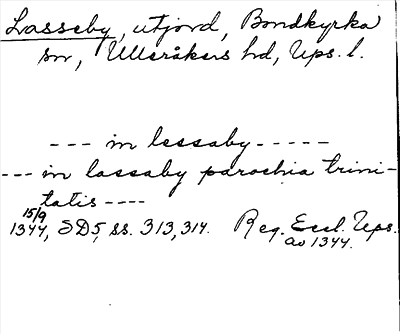 Lasseby, utjord, Bondkyrka
sn, Ulleråkers hd, Ups. l.
--- in lessaby -----
--- in lassaby parochia trini-
tatis ----
15/9
1344, SD5, ss. 313, 314. Reg. Eccl. Ups.
av 1344.